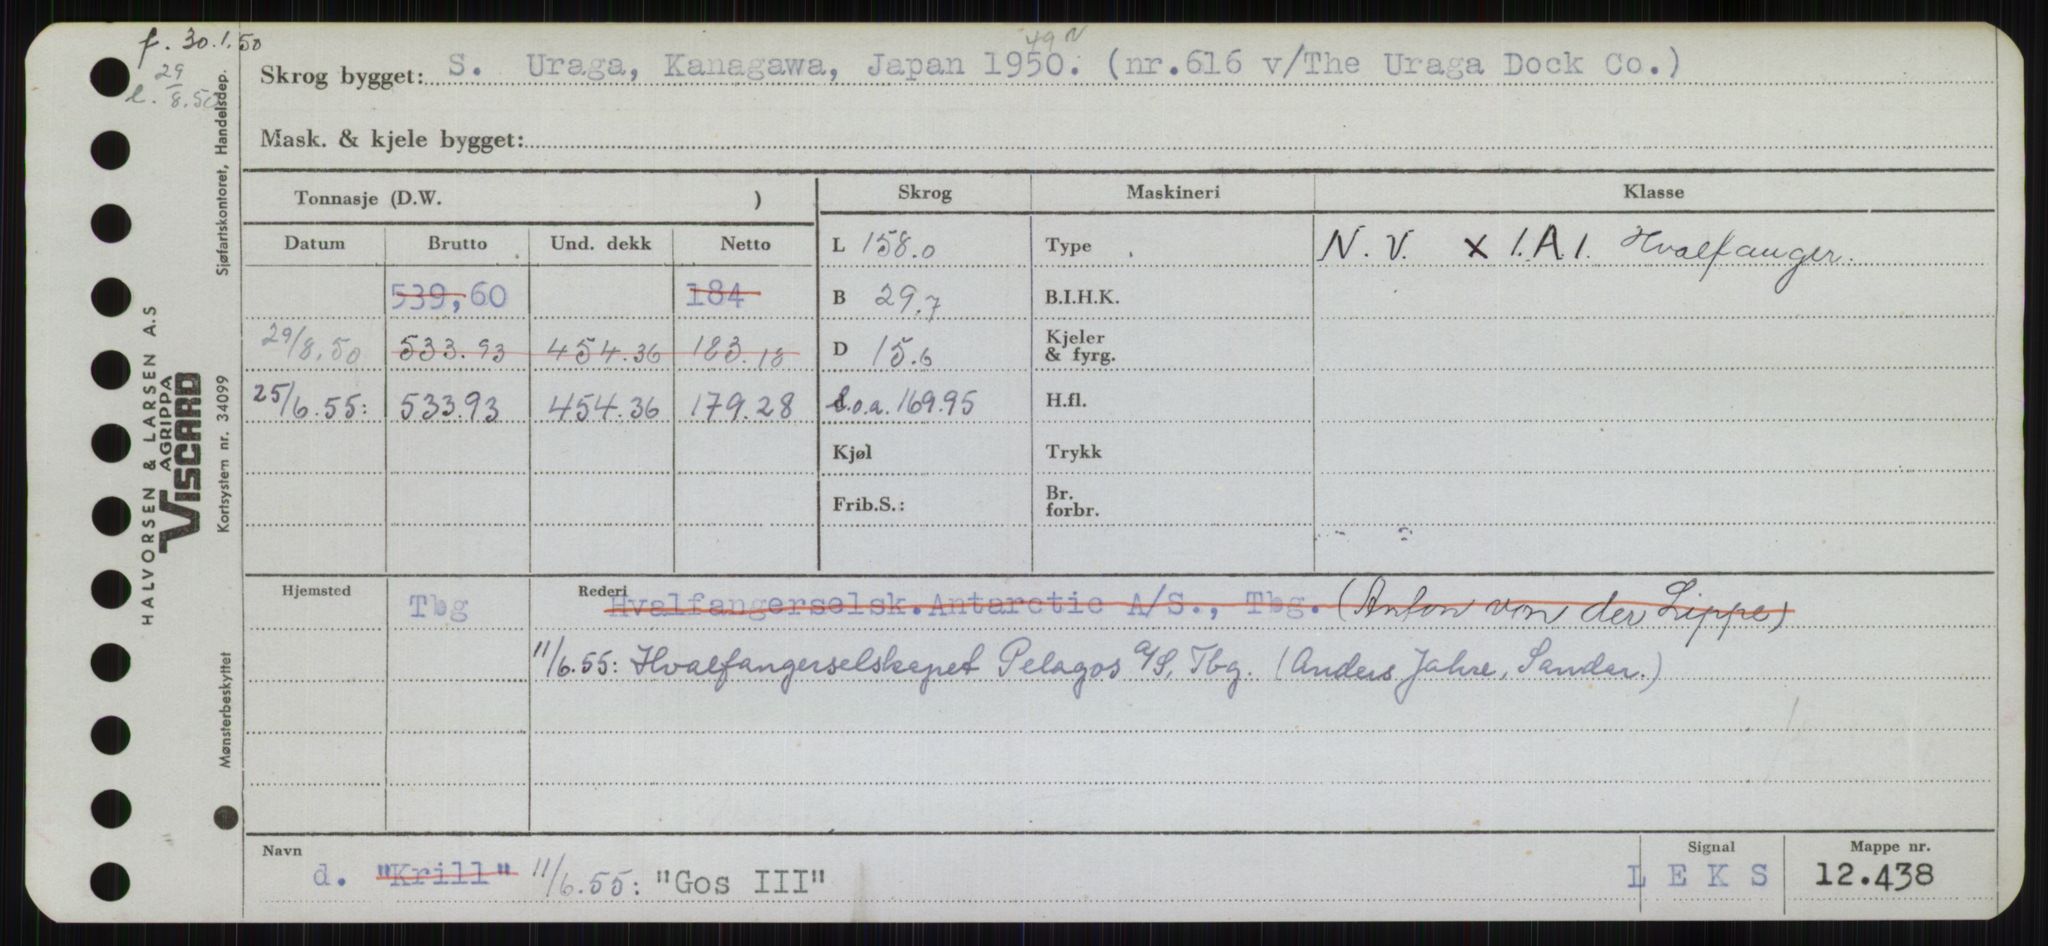 f. 30.1.50
29
l. 8.50
49 N
Skrog bygget: S. Uraga, Kanagawa, Japan 1950. (nr.616 v/The Uraga Dock Co.)
Mask. & kjele bygget:
Tonnasje (D.W. )
Skrog Maskineri Klasse
Datum Brutto Und. dekk Netto
L 158.0 Type N.V. x 1.A.1. Hvalfanger.
539,60 184
B 29.7 B.I.H.K.
29/8.50 533.93 454.36 183.18
D 15.6 Kjeler & fyrg.
25/6.55: 533.93 454.36 179.28
l.o.a. 169.95 H.fl.
Kjøl Trykk
Frib.S.: Br. forbr.
Hjemsted Tbg Rederi Hvalfangerselsk.Antarctic A/S., Tbg. (Anton von der Lippe)
11/6.55: Hvalfangerselskapet Pelagos a/S, Tbg. (Anders Jahre, Sandar.)
Navn Signal Mappe nr.
d. "Krill" 11/6.55: "Gos III" L E K S 12.438
HALVORSEN & LARSEN A.S
AGRIPPA
VISCARD
Mønsterbeskyttet Kortsystem nr. 34099 Sjøfartskontoret, Handelsdep.